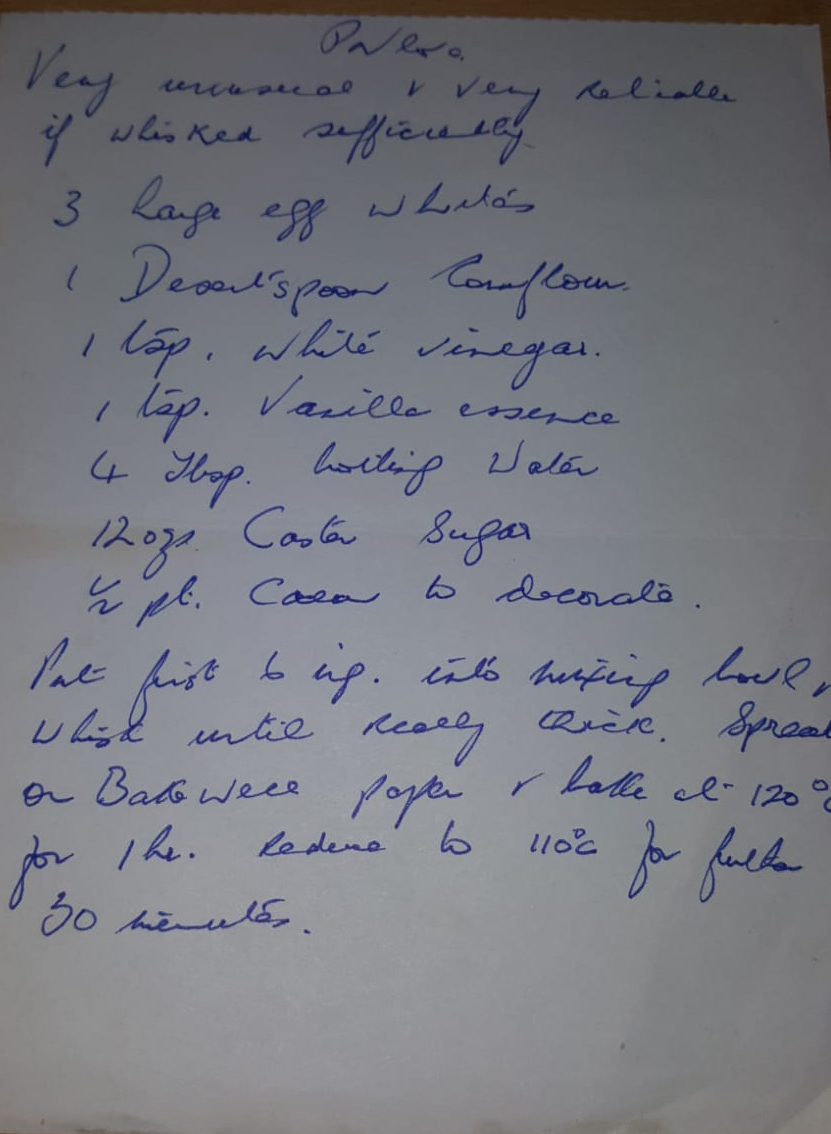 Pavlova
Very unusual & very reliable
if whisked sufficiently.
3 large egg whites
1 Desertspoon Cornflour.
1 tsp. white vinegar.
1 tsp. Vanilla essence
4 Tbsp. boiling Water
12 ozs. Castor Sugar
½ pt. Cream to decorate.
Put first 6 ing. into mixing bowl &
whisk until really thick. Spread
on Bakewell paper & bake at 120°C
for 1 hr. Reduce to 110°C for further
30 minutes.